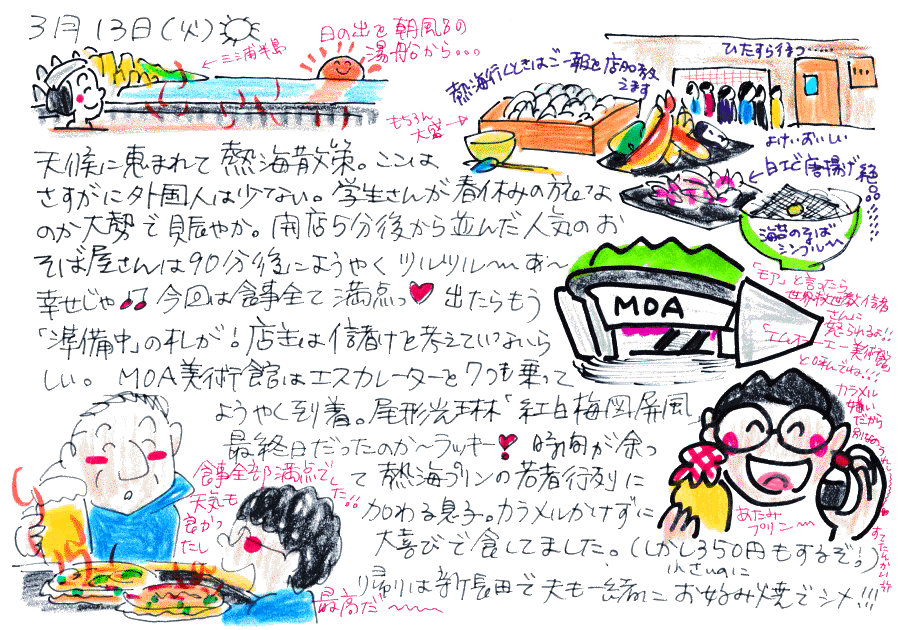 3月13日(火)
日の出を朝風呂の
湯船から…
←三浦半島
熱海行くときはご一報を店名教
えます
もちろん
大盛→
ひたすら待つ……
よけいおいしい
←白エビ唐揚げ 絶品
海苔のそば
シンプル〜
天候に恵まれて熱海散策。ここは
さすがに外国人は少ない。学生さんが春休みの
のか大勢で賑やか。開店5分後から並んだ人気のお
そば屋さんは90分後にようやくツルツル〜あ〜
幸せじゃ♫今回は食事全て満点っ♥出たらもう
「準備中」の札が!店主は儲けを考えていないら
しい。MOA美術館はエスカレーターを7つも乗って
ようやく到着。尾形光琳「紅白梅図屏風
最終日だったのがラッキー❣時間が余っ
て熱海プリンの若者行列に
加わる息子。カラメルかけずに
大喜びで食してました。(しかし350円もするぞ!)
小さいのに
帰りは新長田で夫も一緒にお好み焼でシメ!!!
MOA
「モア」と言ったら
世界救世教信者
さんに
怒られるよ!!
「エムオーエー美術館」
と呼んでね!!!
カラメル
嫌い
だから
あたみ
プリン〜
食事全部満点で
天気も
良かっ
たし
最高だ〜〜〜